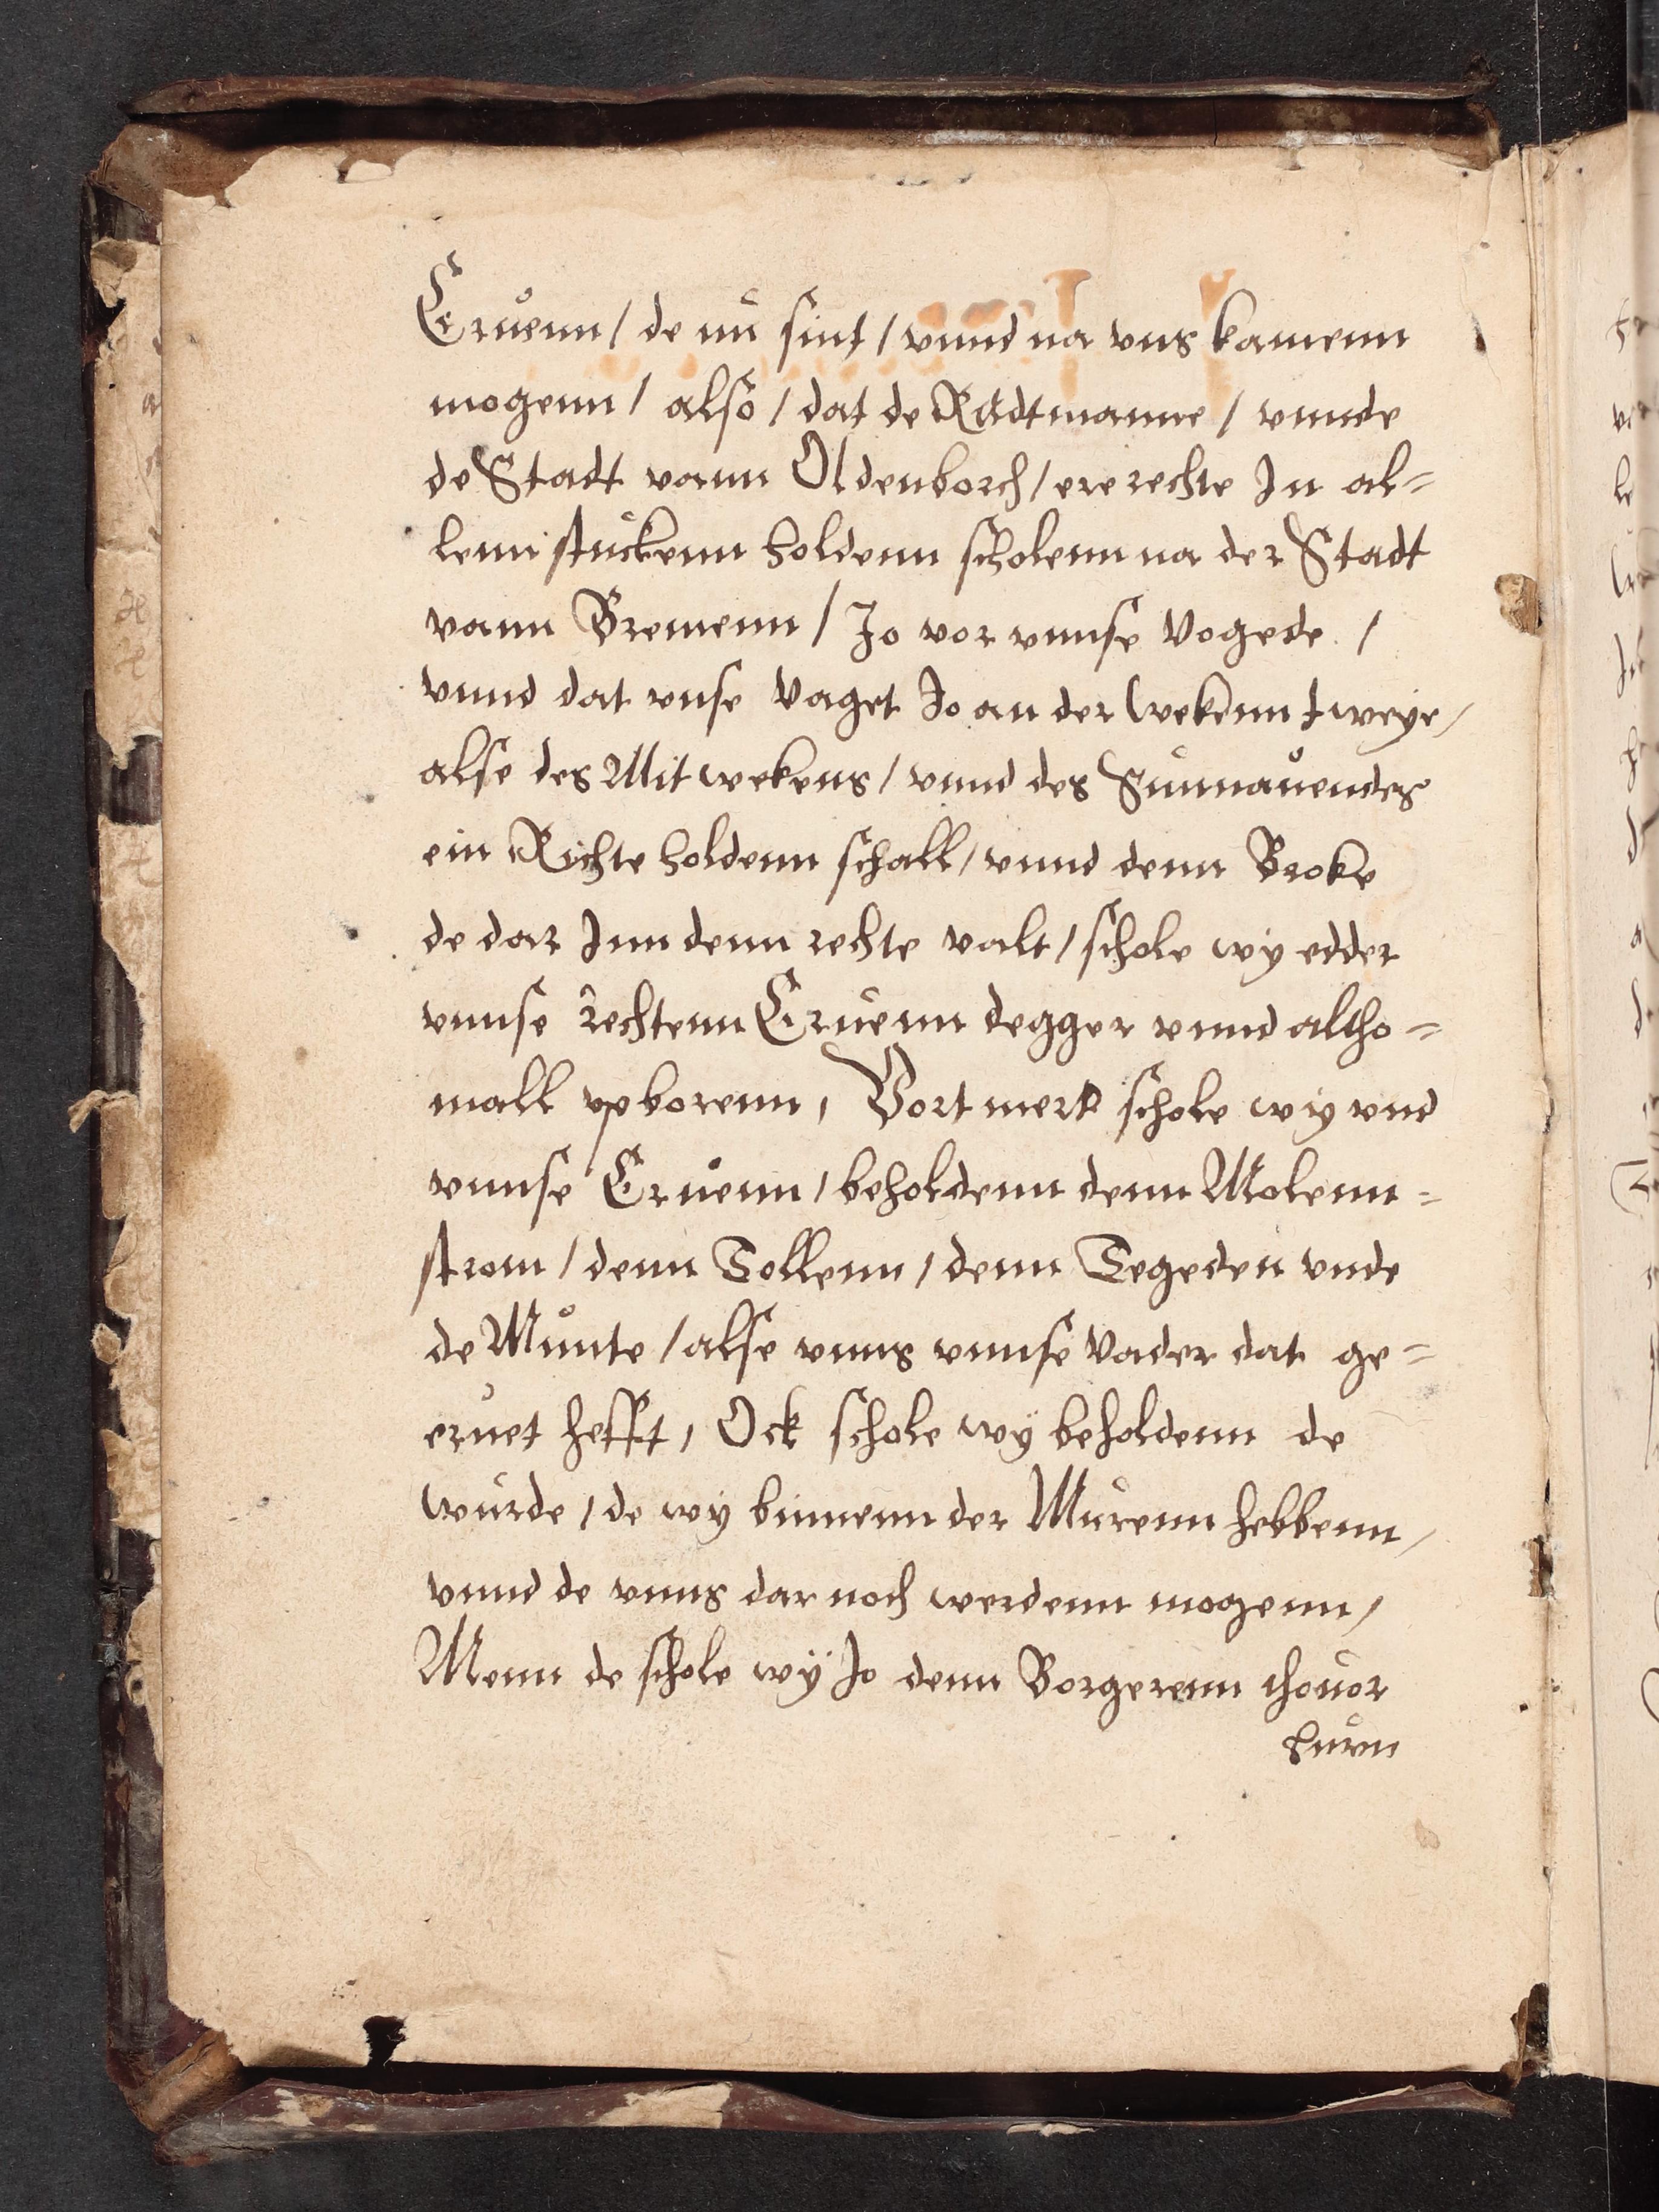 Eruenn / de nu sint / vnnd na vns kamenn
mogenn / also / dat de Radtmanne / vnnde
de Stadt vann Oldenborch / ere rechte In al=
lenn stuckenn holdenn scholenn na der Stadt
vann Bremenn / Jo vor vnnse Vogede /
vnnd dat vnse Vaget Jo an der Wekenn tweye /
alse des Mitwekens / vnnd des Sunnauendes
ein Richte holdenn schall / vnnd denn Broke
de dar Inn denn rechte valt / schole wy edder
vnnse rechtenn Eruenn degger vnnd altho=
mall vpborenn, Vort merr schole wy vnd
vnnse Eruenn / beholdenn denn Molenn=
strom / denn Tollenn / denn Tegeden vnde
de Munte / alse vnns vnnse Vader dat ge=
eruet hefft, Ock schole wÿ beholdenn de
wurde / de wy binnenn der Murenn hebbenn /
vnnd de vnns dar noch werdenn mogenn /
Menn de schole wÿ Jo denn Borgerenn thouor